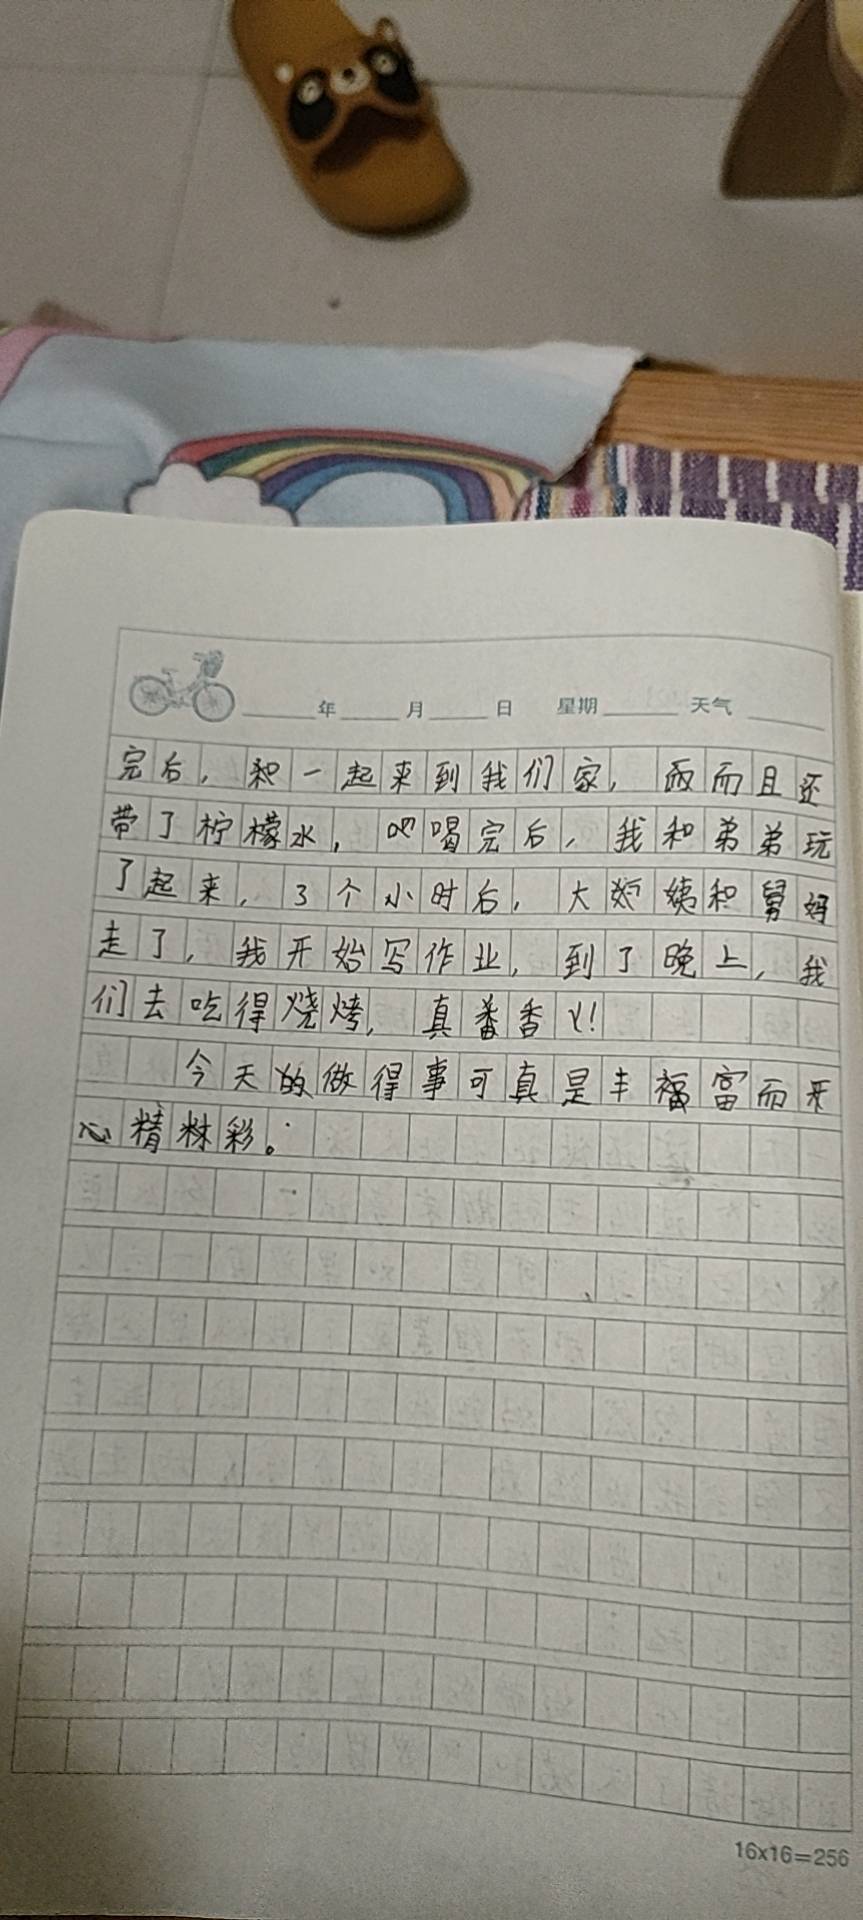 年 月 日 星期 天气
完后，和一起来到我们家，而且还
带了柠檬水，喝完后，我和弟弟玩
了起来，3个小时后，大姨和舅妈
走了，我开始写作业，到了晚上，我
们去吃得烧烤，真香！
今天做得事可真是丰富而
精彩。
16x16=256